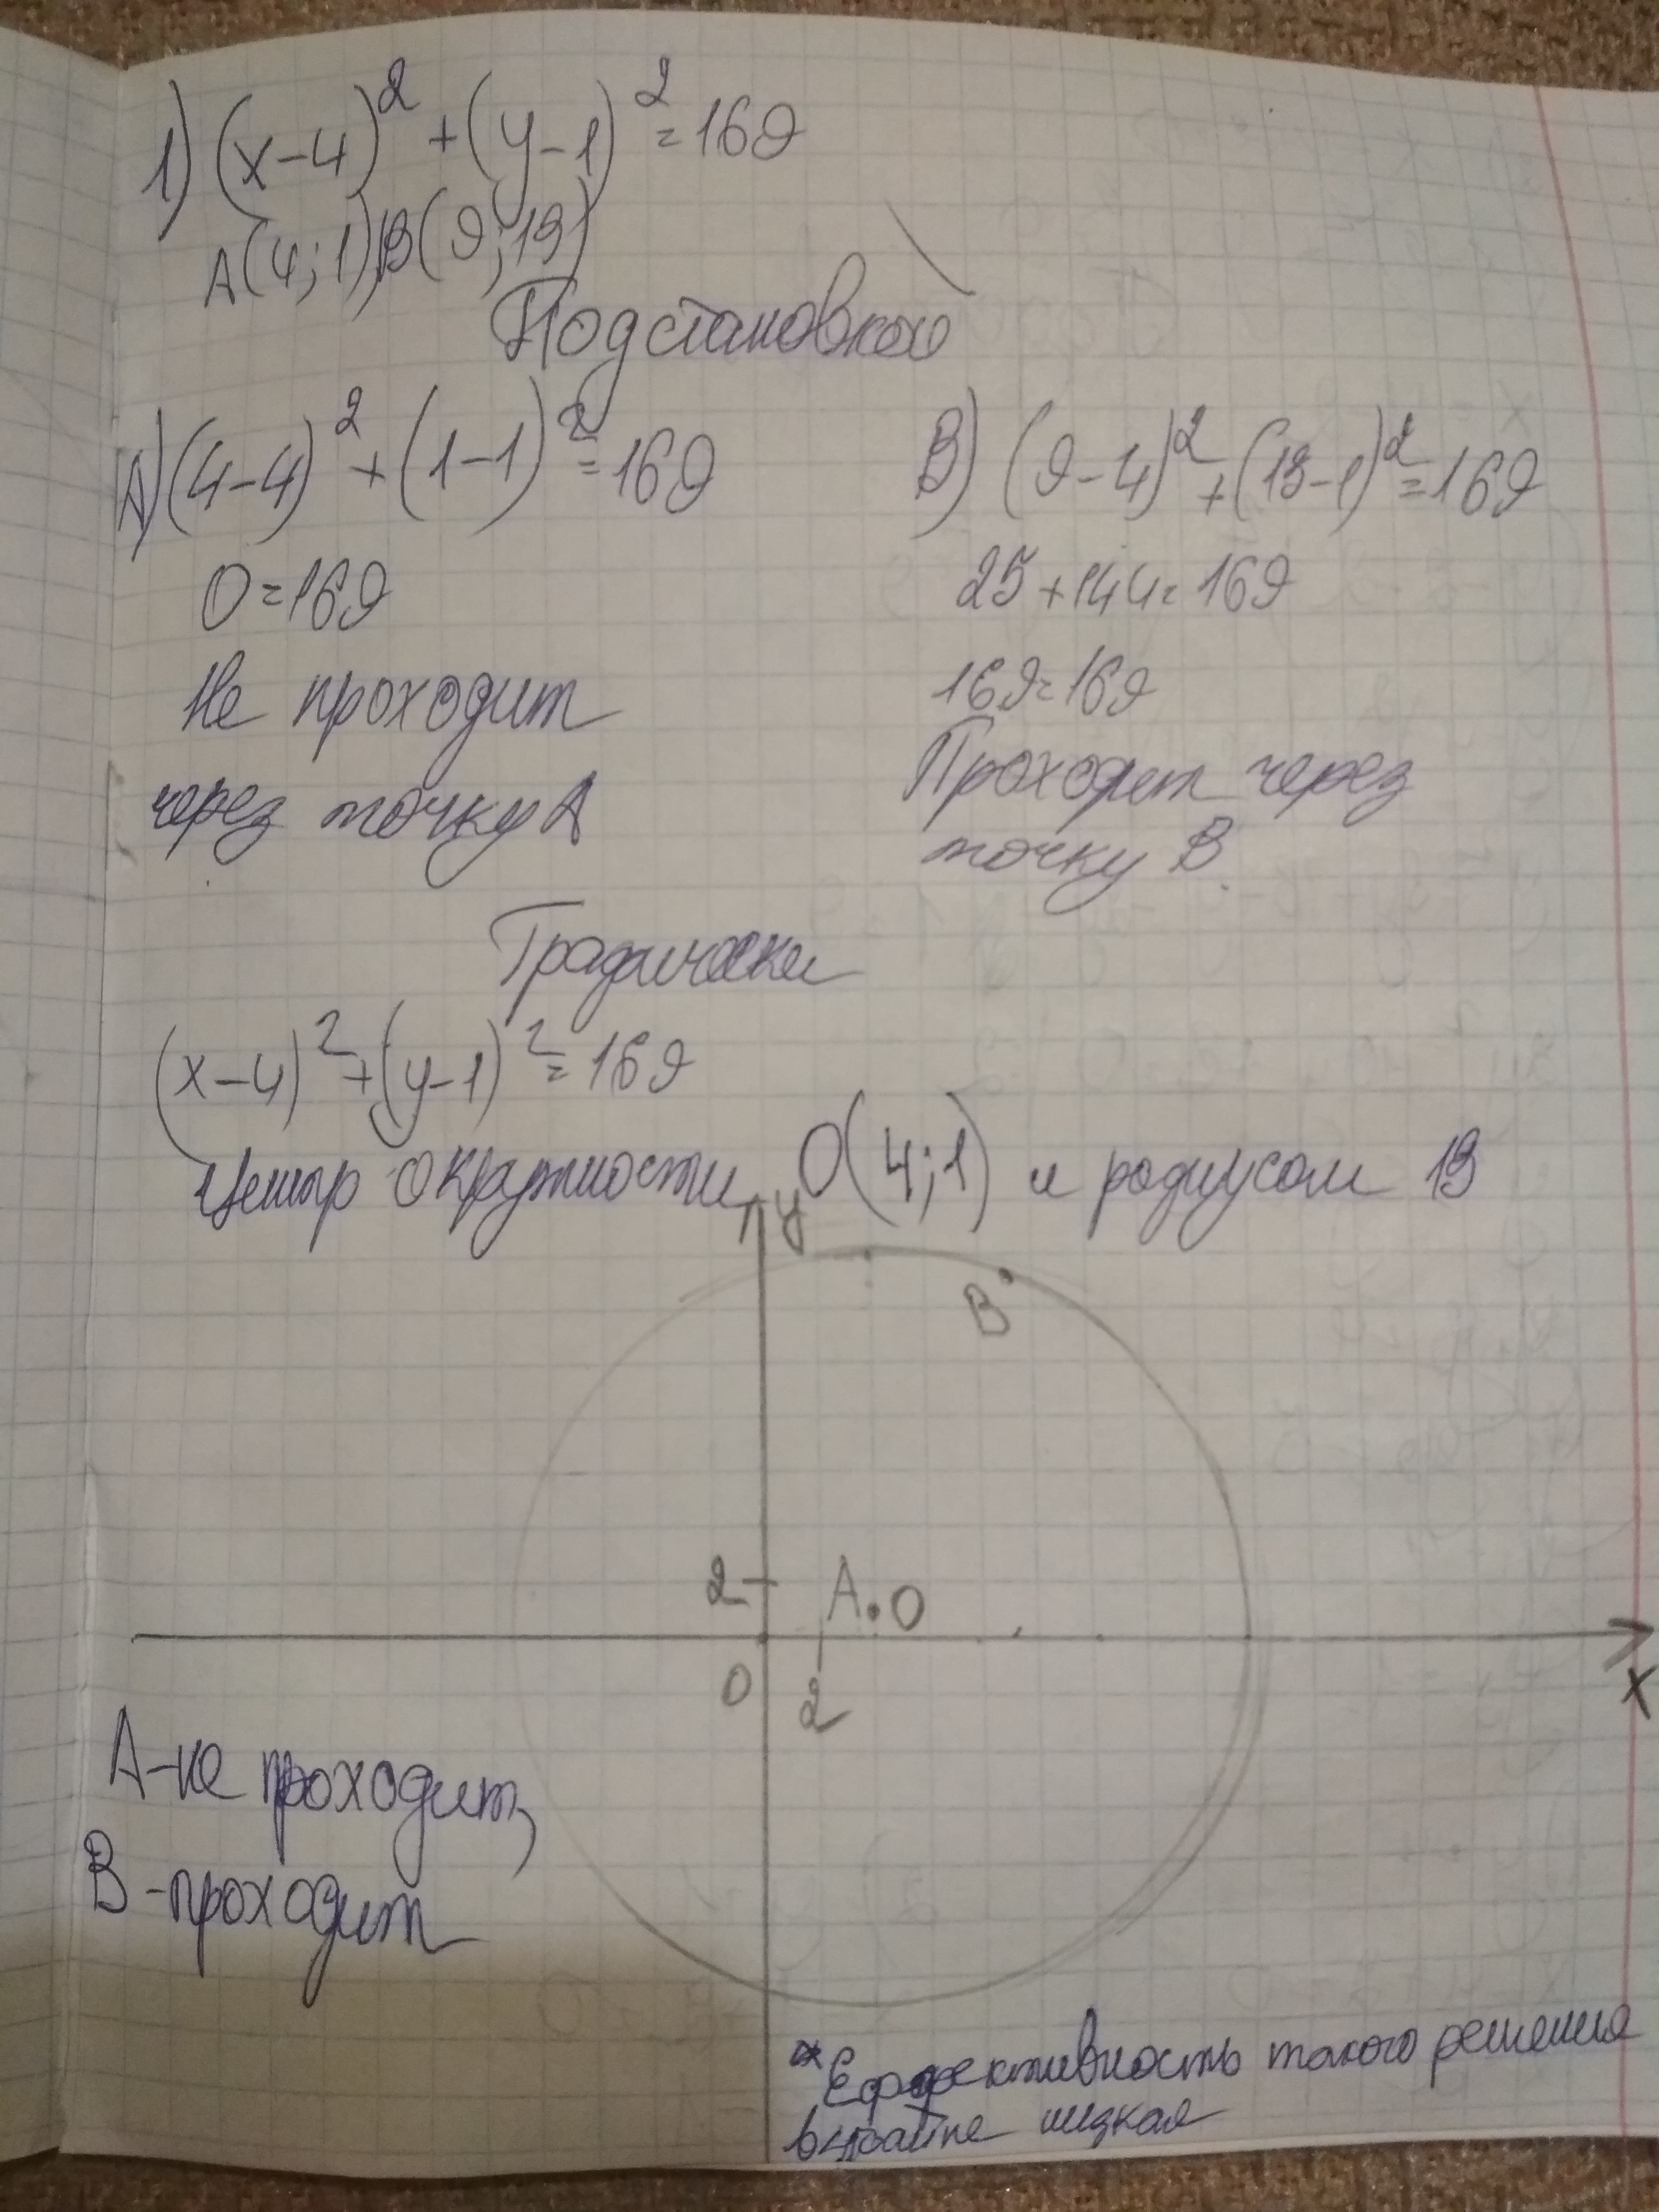 1) (x-4)² + (y-1)² = 169
A(4;1), B(9;13)
Подстановкой
A) (4-4)² + (1-1)² = 169
0 = 169
Не проходит
через точку A
B) (9-4)² + (13-1)² = 169
25 + 144 = 169
169 = 169
Проходит через
точку B
Графически
(x-4)² + (y-1)² = 169
Центр окружности O(4;1) и радиусом 13
y
B
2
A
O
0
2
x
A-не проходит,
B-проходит
*Еффективность такого решения
крайне низкая